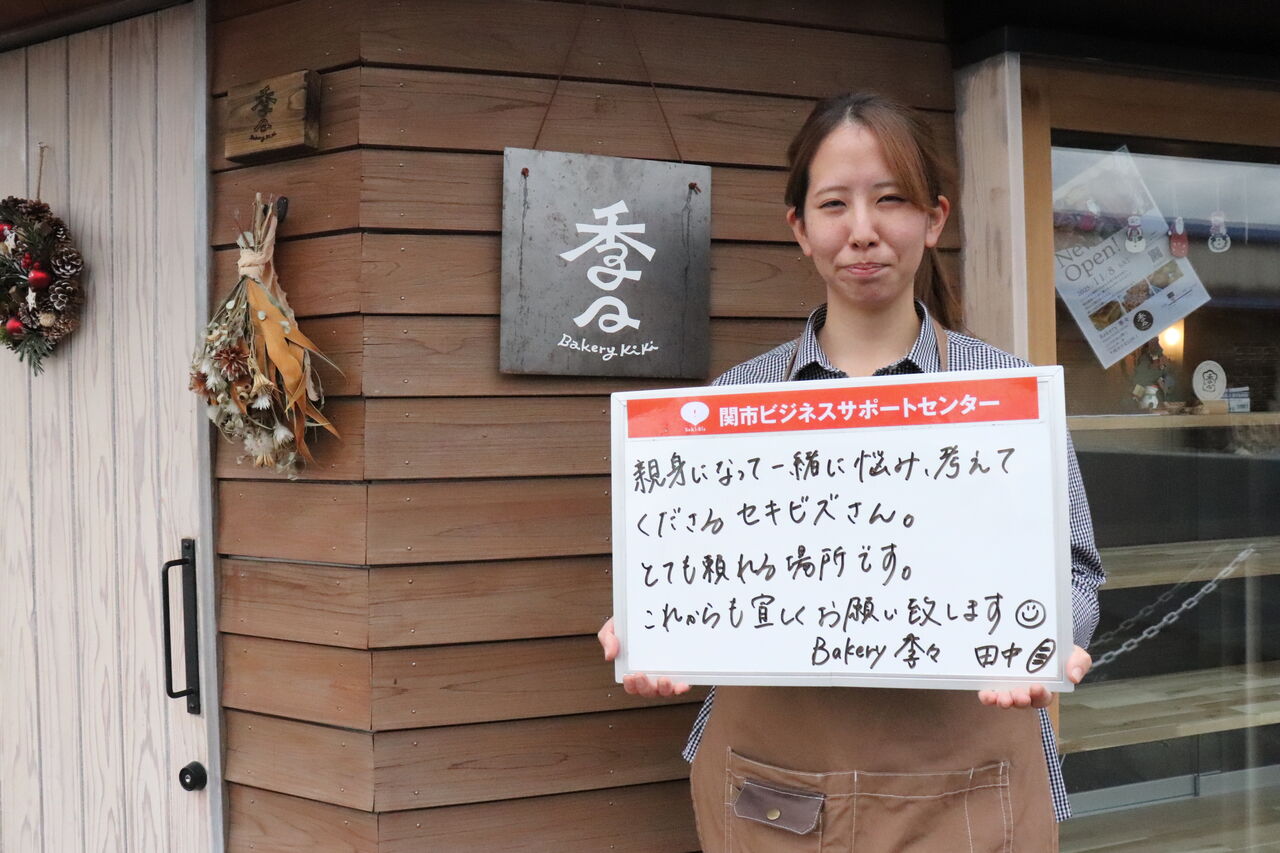 季々
Bakery KiKi
季々
Bakery KiKi
New
Open!
11/8
Bakery 季々
関市ビジネスサポートセンター
親身になって一緒に悩み、考えて
くださる セキビズさん。
とても頼れる場所です。
これからも宜しくお願い致します
Bakery 季々 田中